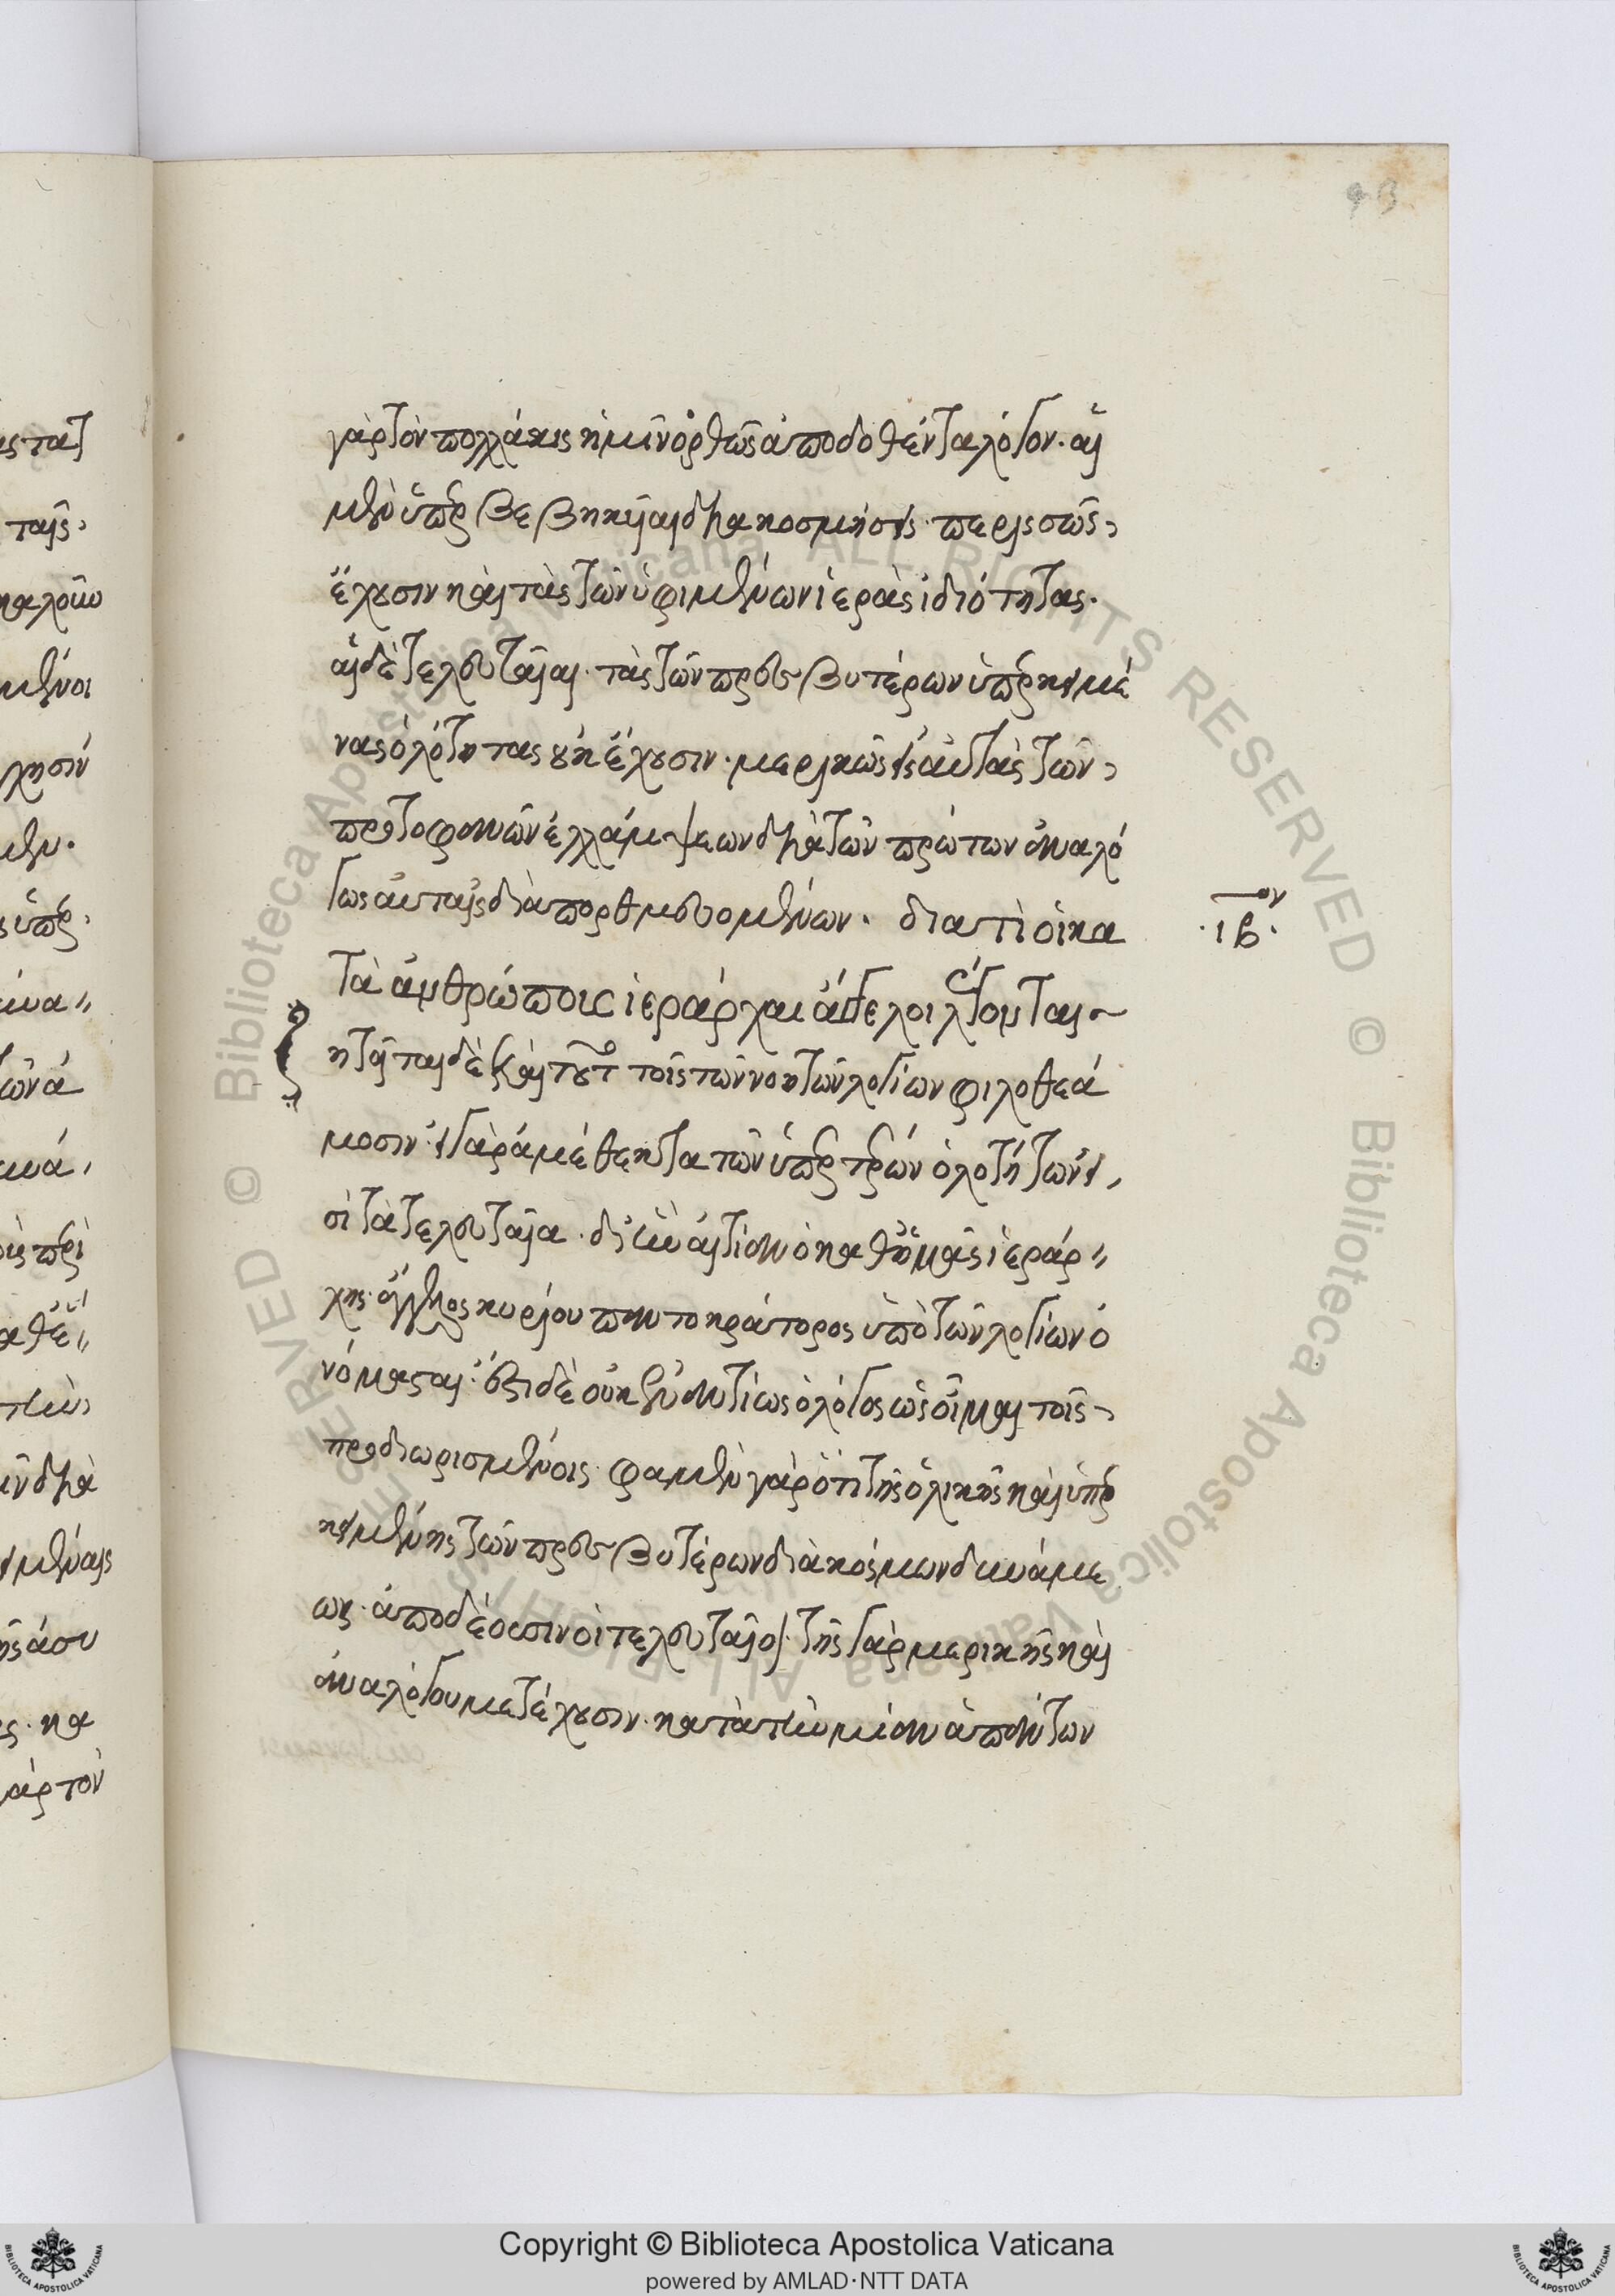 93
γὰρ τὸν πολλάκις ἡμῖν ὀρθῶς ἀποδοθέντα λόγον. αἱ
μὲν ὑπερβεβηκυῖαι διακοσμήσεις· περισσῶς
ἔχουσιν καὶ τὰς τῶν ὑφειμένων ἱερὰς ἰδιότητας.
αἱ δὲ τελευταῖαι· τὰς τῶν πρεσβυτέρων ὑπερκειμέ
νας ὁλότητας οὐκ ἔχουσιν. μερικῶς εἰς αὐτὰς τῶν
πρωτοφανῶν ἐλλάμψεων διὰ τῶν πρώτων ἀναλό
γως αὐταῖς διαπορθμευομένων. διατὶ οἱ κα
τὰ ἀνθρώποις ἱεράρχαι ἄγγελοι λέγονται
·ιβ·ον
ζητεῖται δὲ καὶ τοῦτο τοῖς τῶν νοητῶν λογίων φιλοθεά
μοσιν· εἰ γὰρ ἀμέθεκτα τῶν ὑπερτέρων ὁλοτήτων εἰ
σὶ τὰ τελευταῖα. δι' ἣν αἰτίαν ὁ καθ' ἡμᾶς ἱεράρ
χης· ἄγγελος κυρίου παντοκράτορος ὑπὸ τῶν λογίων ὠ
νόμασται· ἔστι δὲ οὐκ ἐναντίως ὁ λόγος ὡς οἶμαι τοῖς
προδιωρισμένοις· φαμὲν γὰρ ὅτι τῆς ὁλικῆς καὶ ὑπερ
κειμένης τῶν πρεσβυτέρων διακόσμων δυνάμε
ως· ἀποδέουσιν οἱ τελευταῖοι· τῆς γὰρ μερικῆς καὶ
ἀναλόγου μετέχουσιν. κατὰ τὴν μίαν ἁπάντων
Copyright © Biblioteca Apostolica Vaticana
powered by AMLAD·NTT DATA